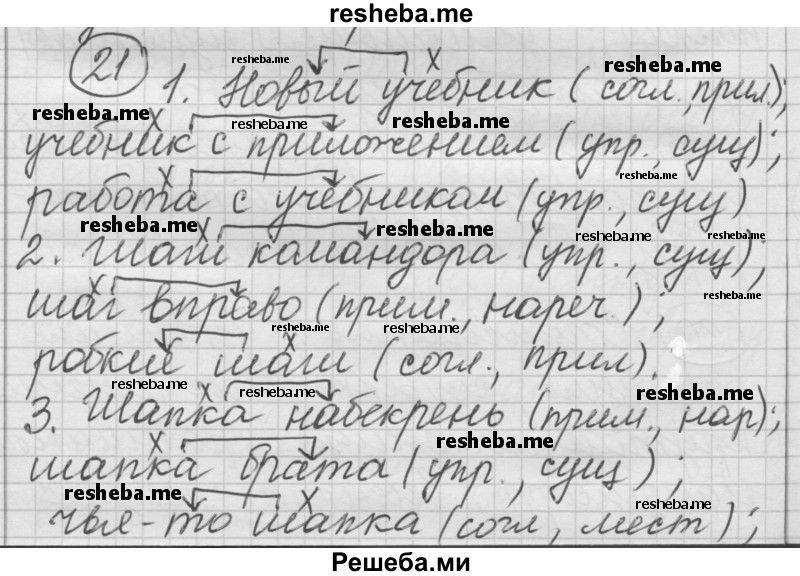 resheba.me
resheba.me
21 1. Новый учебник (согл., прил.);
resheba.me
resheba.me resheba.me resheba.me
учебник с приложением (упр., сущ);
resheba.me
работа с учебником (упр., сущ)
resheba.me resheba.me resheba.me resheba.me
2. Шаги командора (упр., сущ);
resheba.me
шаг вправо (прим., нареч.);
resheba.me resheba.me
робкие шаги (согл., прил).
resheba.me resheba.me resheba.me
3. Шапка набекрень (прим., нар);
resheba.me
шапка брата (упр., сущ);
resheba.me resheba.me
чья-то шапка (согл, мест);
Решеба.ми